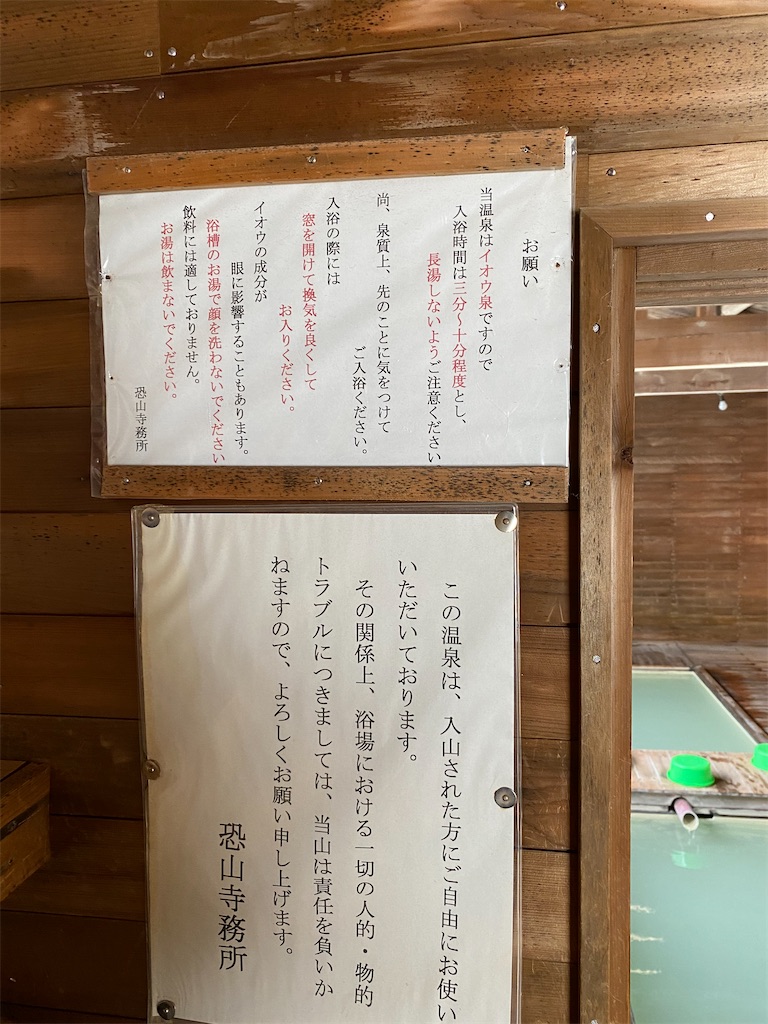 お願い
当温泉はイオウ泉ですので
入浴時間は三分～十分程度とし、
長湯しないようご注意ください
尚、泉質上、先のことに気をつけて
ご入浴ください。
入浴の際には
窓を開けて換気を良くして
お入りください。
イオウの成分が
眼に影響することもあります。
浴槽のお湯で顔を洗わないでください
飲料には適しておりません。
お湯は飲まないでください。
恐山寺務所
この温泉は、入山された方にご自由にお使い
いただいております。
その関係上、浴場における一切の人的・物的
トラブルにつきましては、当山は責任を負いか
ねますので、よろしくお願い申し上げます。
恐山寺務所